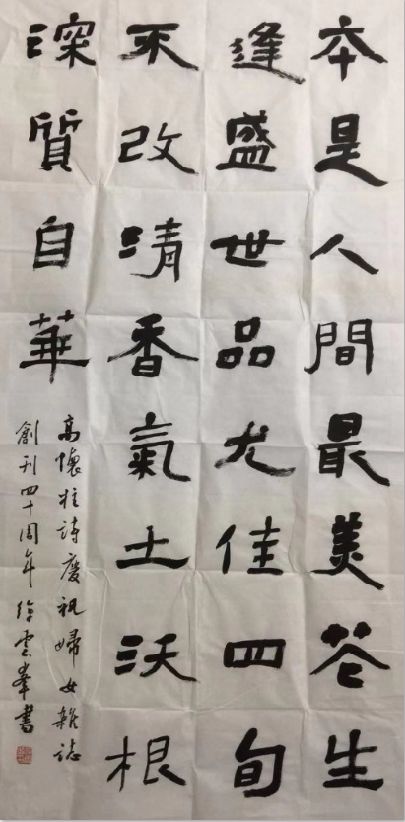 本是人間最美花生
逢盛世品尤佳四旬
不改清香氣土沃根
深質自華
高懷柱詩慶祝婦女雜誌
創刊四十周年 徐雲峯書